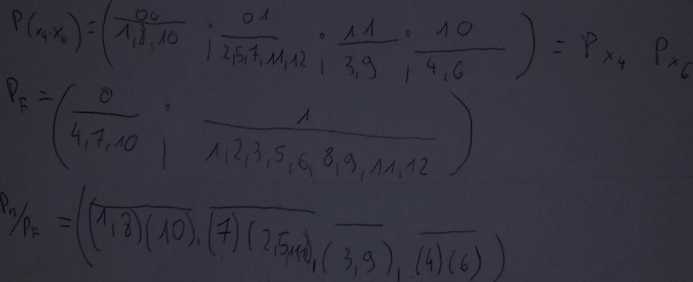 P(x₄,x₆) = ( 00/1,8,10 ; 01/2,5,7,11,12 ; 11/3,9 ; 10/4,6 ) = P x₄ P x₆
P_F = ( 0/4,7,10 ; 1/1,2,3,5,6,8,9,11,12 )
/P_F = ( (1,8)(10), (7)(2,5,11,12), (3,9), (4)(6) )